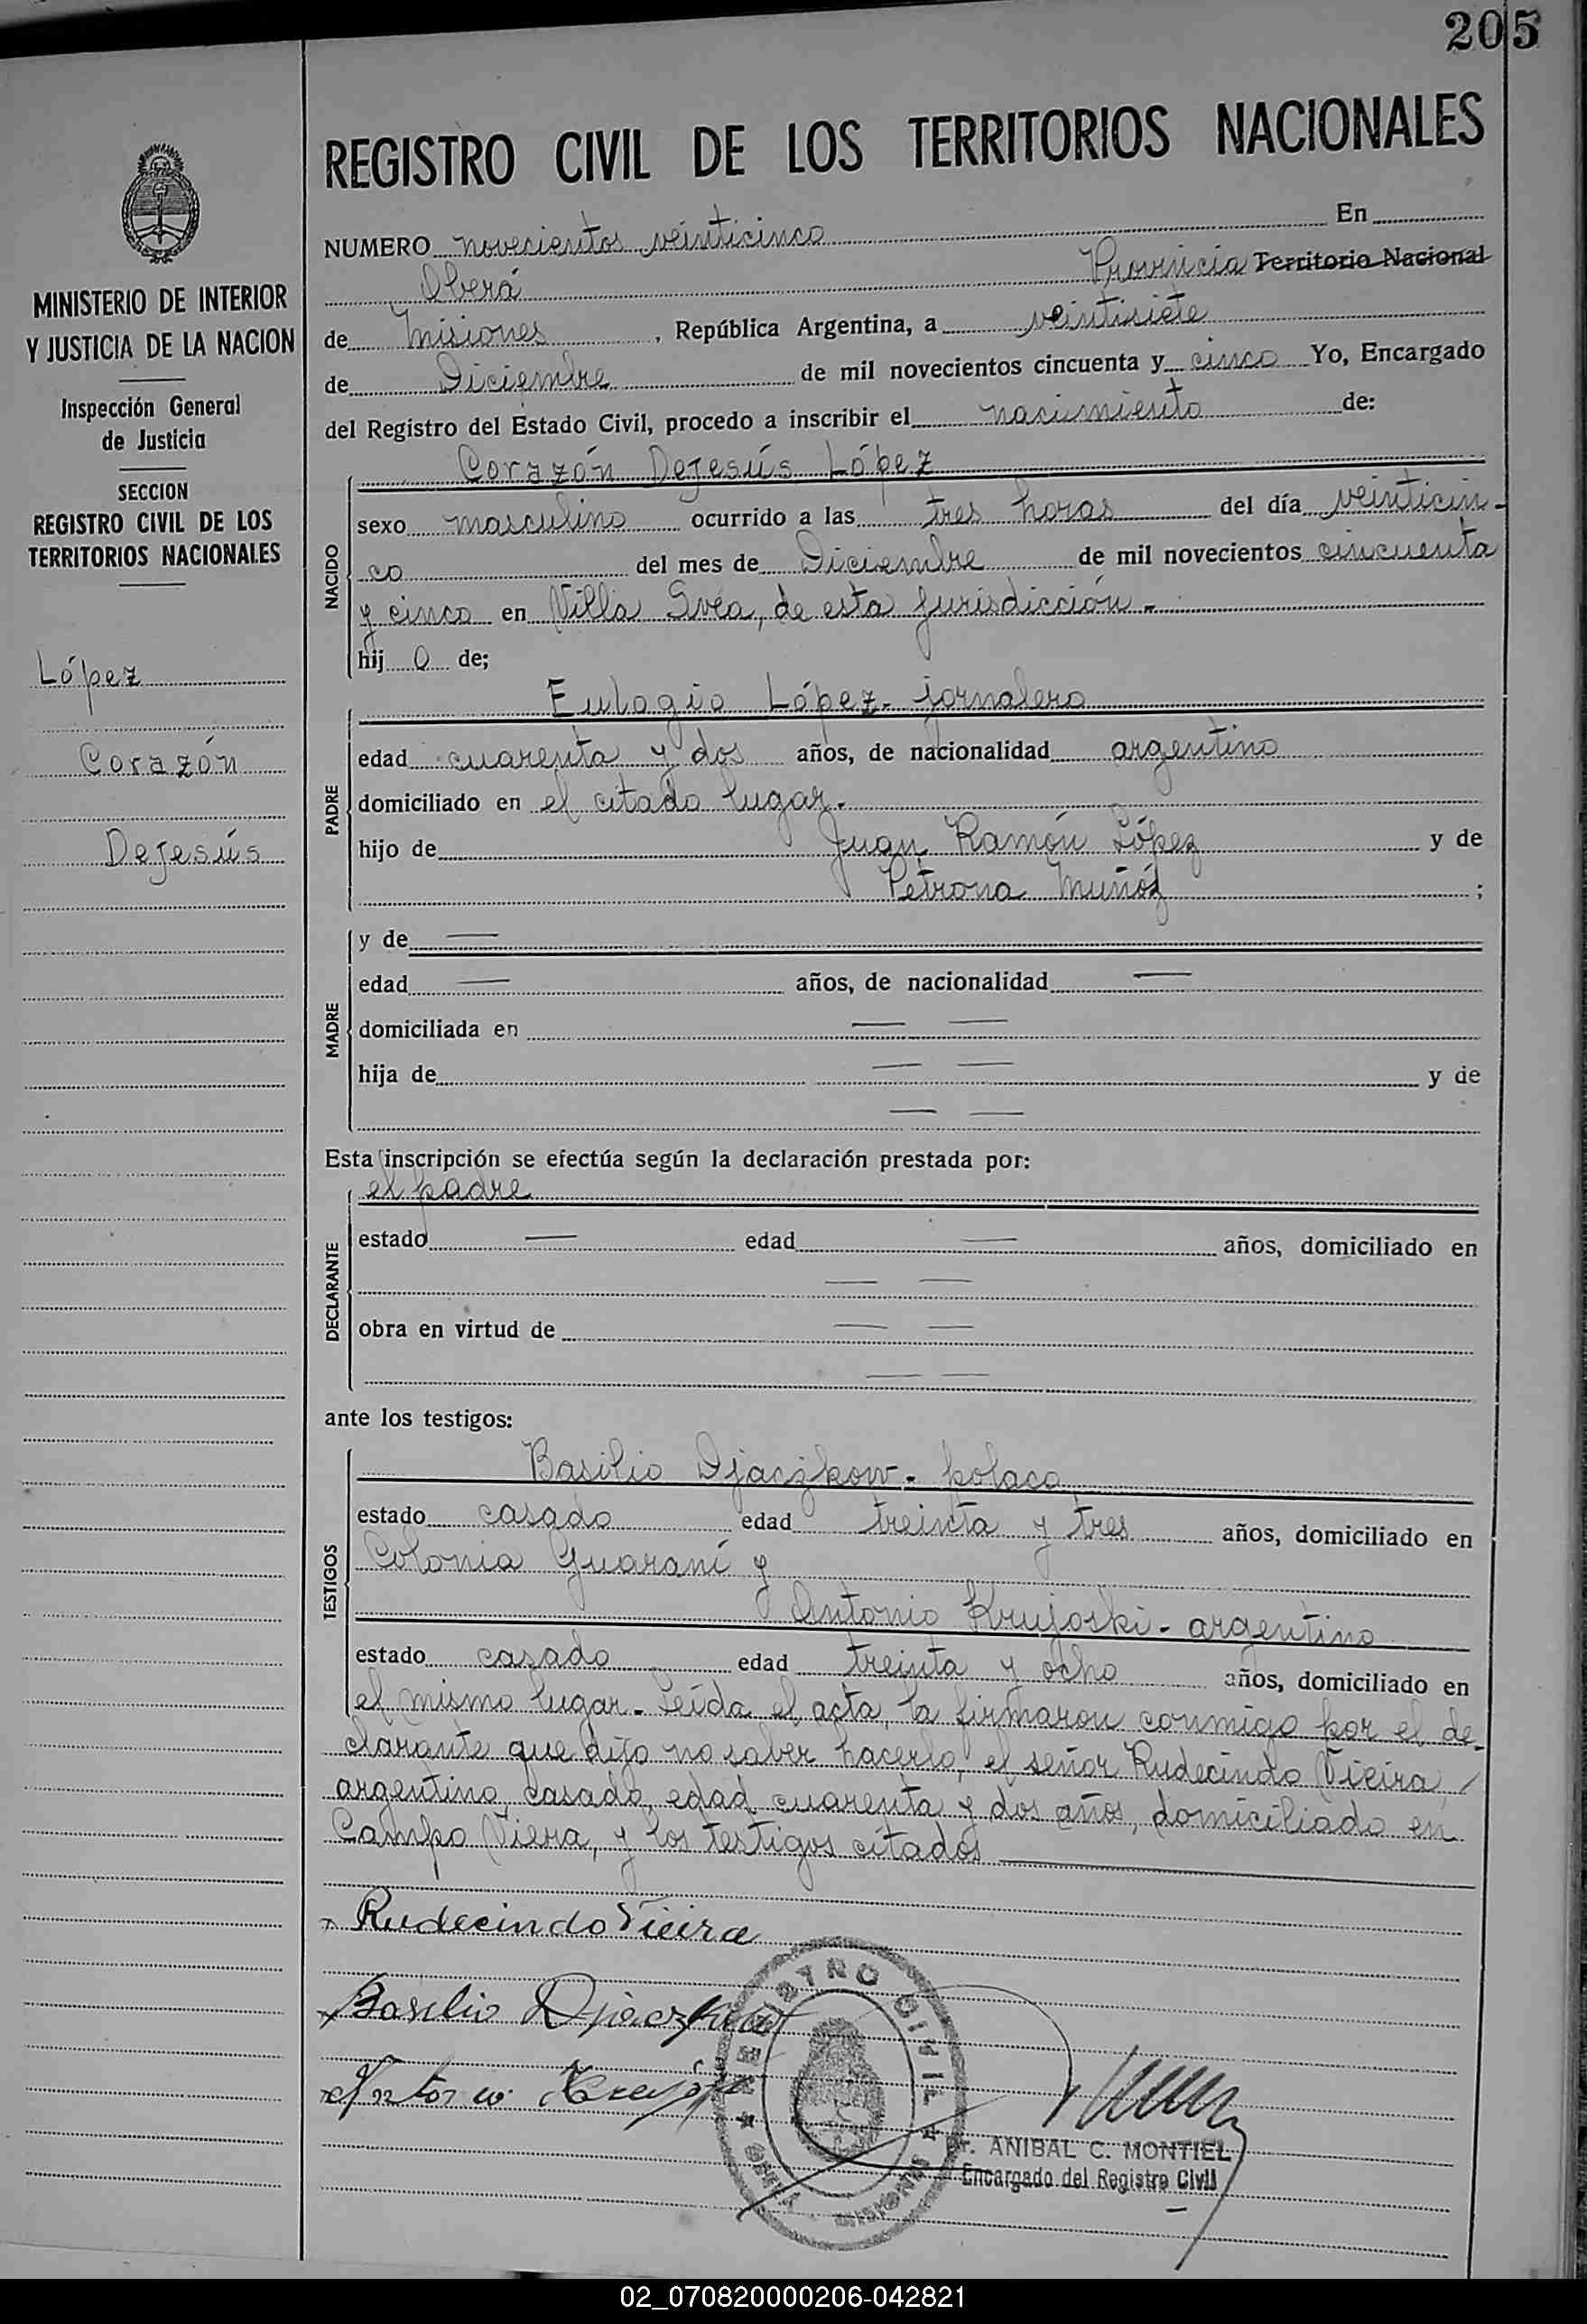 205
REGISTRO CIVIL DE LOS TERRITORIOS NACIONALES
MINISTERIO DE INTERIOR
Y JUSTICIA DE LA NACION
Inspección General
de Justicia
SECCION
REGISTRO CIVIL DE LOS
TERRITORIOS NACIONALES
López
Corazón
Dejesús
NUMERO novecientos veinticinco En
Oberá Provincia Territorio Nacional
de Misiones, República Argentina, a veintisiete
de Diciembre de mil novecientos cincuenta y cinco Yo, Encargado
del Registro del Estado Civil, procedo a inscribir el nacimiento de:
NACIDO
Corazón Dejesús López
sexo masculino ocurrido a las tres horas del día veinticin-
co del mes de Diciembre de mil novecientos cincuenta
y cinco en Villa Svea, de esta jurisdicción.-
hij o de;
PADRE
Eulogio López- jornalero
edad cuarenta y dos años, de nacionalidad argentino
domiciliado en el citado lugar.
hijo de Juan Ramón López y de
Petrona Muñóz ;
MADRE
y de —
edad — años, de nacionalidad —
domiciliada en — —
hija de — — y de
— —
Esta inscripción se efectúa según la declaración prestada por:
DECLARANTE
el padre
estado — edad — años, domiciliado en
— —
obra en virtud de — —
— —
ante los testigos:
TESTIGOS
Basilio Djaczkow- polaco
estado casado edad treinta y tres años, domiciliado en
Colonia Guaraní y
Antonio Krujoski- argentino
estado casado edad treinta y ocho años, domiciliado en
el mismo lugar- Leída el acta, la firmaron conmigo por el de-
clarante que dijo no saber hacerlo, el señor Rudecindo Vieira /
argentino, casado, edad cuarenta y dos años, domiciliado en
Campo Viera, y los testigos citados
Rudecindo Vieira
Basilio Djaczkow
Antonio
REGISTRO CIVIL
OBERA MISIONES
Dr. ANIBAL C. MONTIEL
Encargado del Registro Civil
02_070820000206-042821